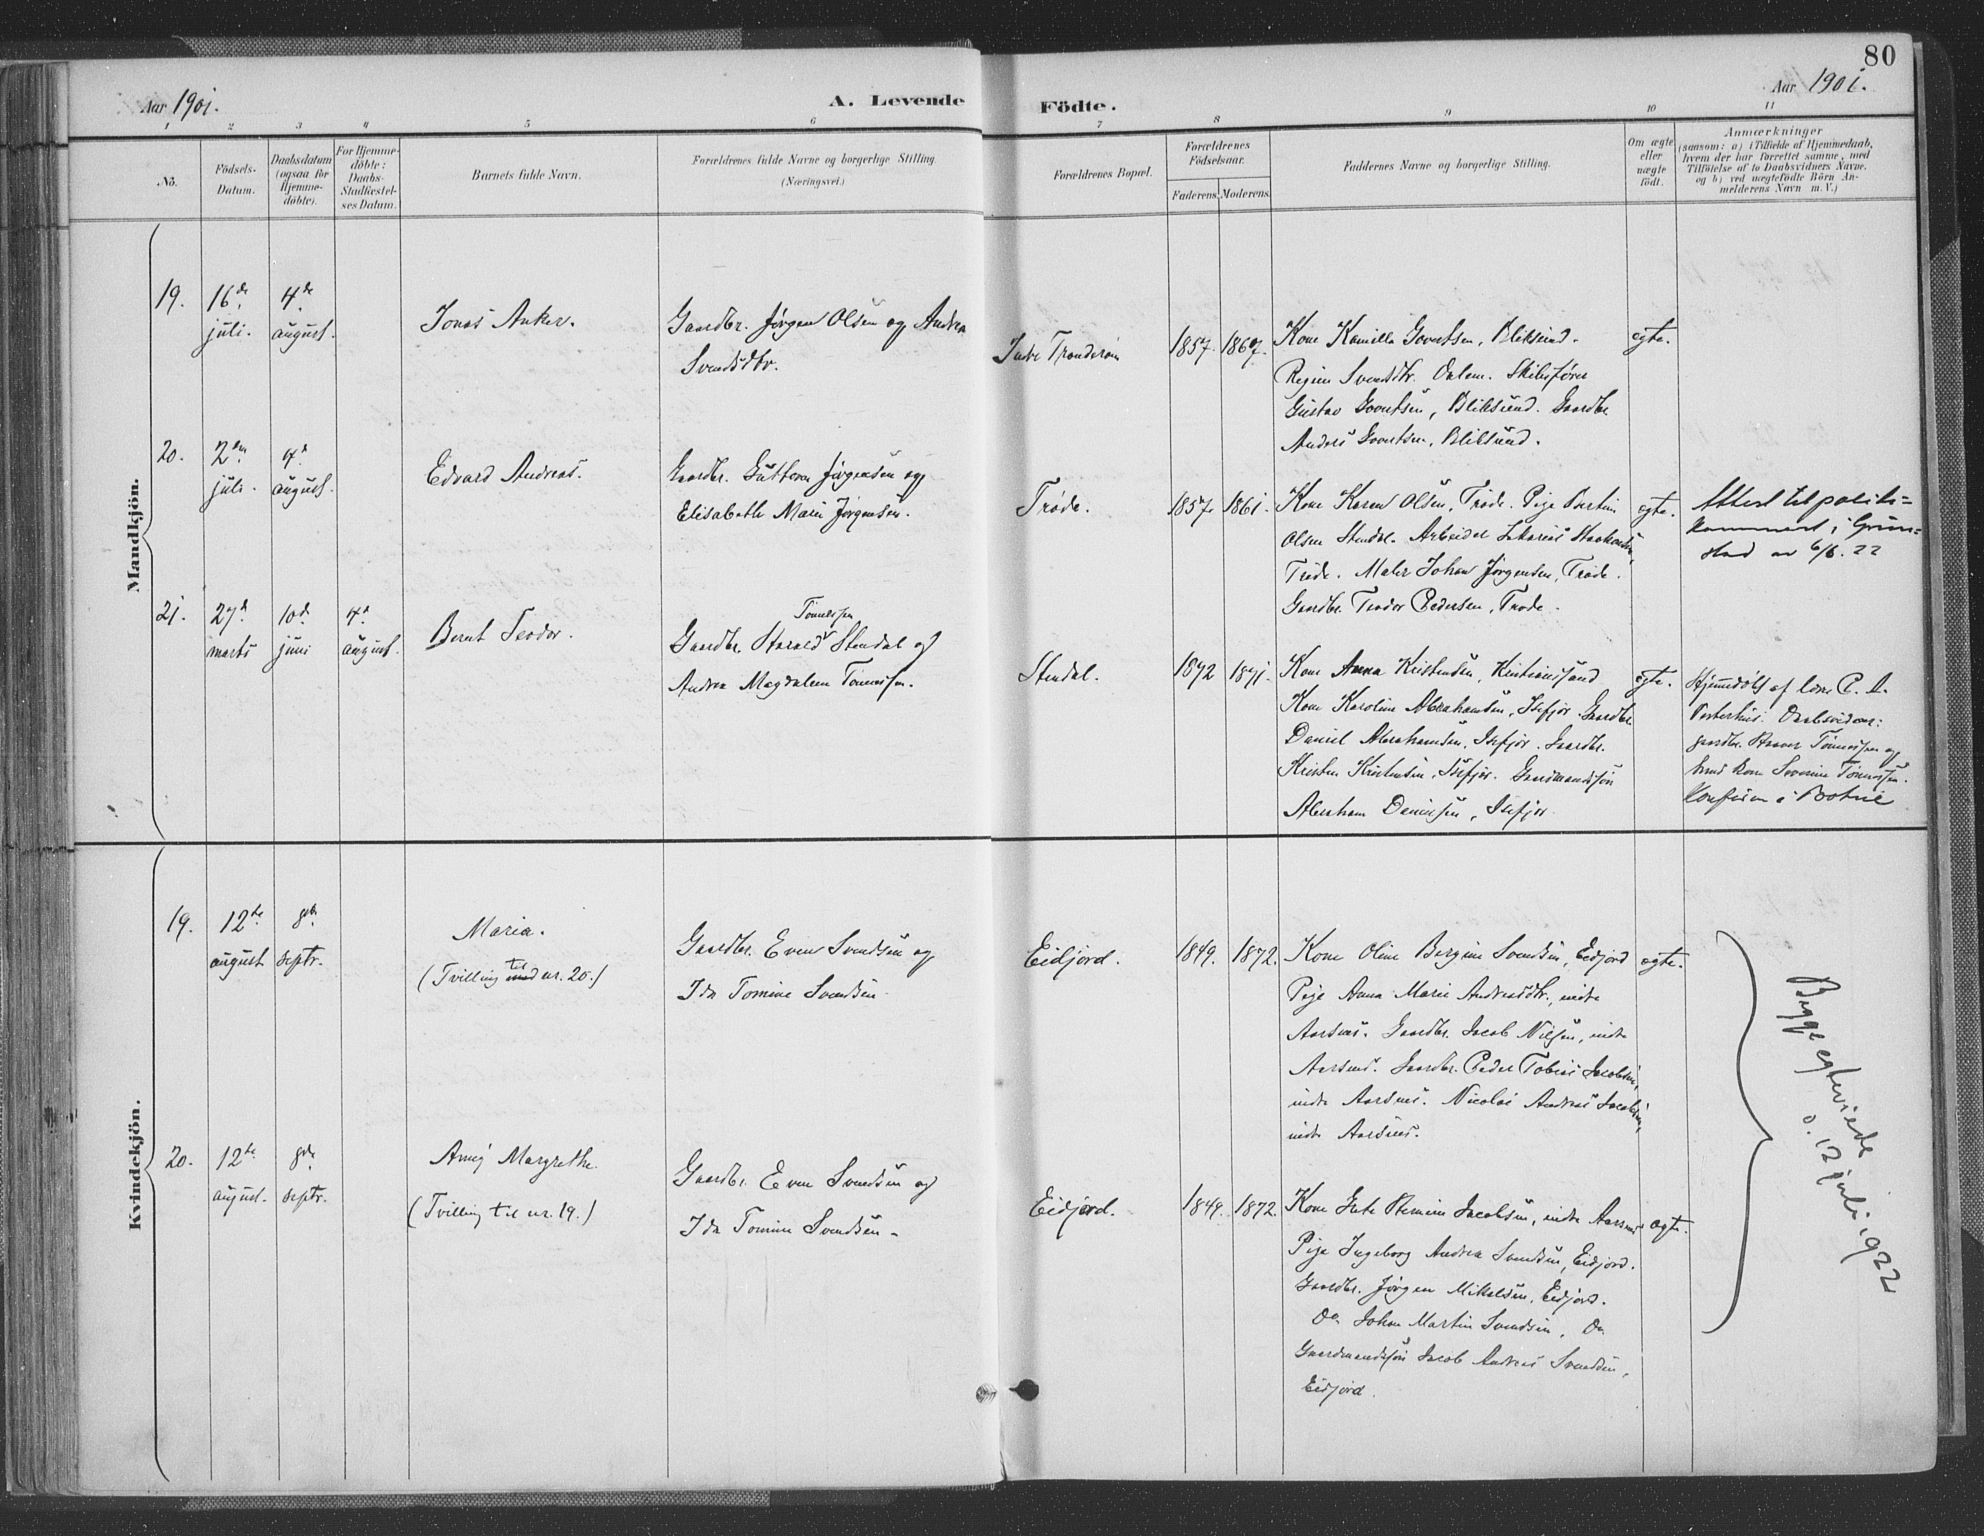 80
Aar 1901.
A. Levende Födte.
Aar 1901.
1 2 3 4 5 6 7 8 9 10 11
No.
Födsels-
Datum.
Daabsdatum
(ogsaa for
Hjemme-
döbte).
For Hjemme-
döbte:
Daabs-
Stadfæstel-
ses Datum.
Barnets fulde Navn.
Forældrenes fulde Navne og borgerlige Stilling
(Næringsvei.)
Forældrenes Bopæl.
Forældrenes
Födselsaar.
Faderens. Moderens.
Faddernes Navne og borgerlige Stilling.
Om ægte
eller
uægte
födt.
Anmærkninger
(saasom: a) i Tilfælde af Hjemmedaab,
hvem der har forrettet samme, med
Tilföielse af to Daabsvidners Navne.
og b) ved uægtefödte Börn An-
melderens Navn m. V.)
Mandkjön.
19.
16de
juli.
4de
august.
Jonas Anker.
Gaardbr. Jørgen Olsen og Andrea
Svendsdtr.
1857. 1867.
Kone Kamilla Govertsen, Bliksund.
Regine Svendsdtr. Skibsfører
Gustav Govertsen, Bliksund. Gaardbr.
Anders Govertsen, Bliksund.
egte.
20.
2den
juli.
4d
august.
Edvard Andreas.
Gaardbr. Guttorm Jørgensen og
Elisabeth Marie Jørgensen.
Trøde.
1857. 1861.
Kone Karen Olsen, Trøde. Pige
Olsen Stendal. Arbeider
Trøde. Maler Johan Jørgensen, Trøde.
Gaardbr. Teodor Pedersen, Trøde.
egte.
Attest til politi-
kammeret i Grim-
stad av 6/6. 22
21.
27d
marts
10d
juni
4d
august.
Bernt Teodor.
Tønnessen
Gaardbr. Harald Stendal og
Andrea Magdalene Tønnessen.
Stendal.
1872 1871.
Kone Anna Kristensen, Kristianssand
Kone Karoline Abrahamsen, Isefjær. Gaardbr.
Daniel Abrahamsen, Isefjær. Gaardbr.
Kristen Kristensen, Isefjær. Gaardmandssøn
Abraham Danielsen, Isefjær.
egte.
Hjemmedøbt af
Daabsvidner:
gaardbr. Tønnessen og
kone Severine Tønnessen.
Kvindekjön.
19.
12te
august
8de
septr.
Maria.
(Tvilling til med nr. 20.)
Gaardbr. Even Svendsen og
Ida Tomine Svendsen
Eidjord.
1849. 1872.
Kone Oline Bergine Svendsen, Eidjord
Pige Anna Marie Andreasdtr., indre
Aarsnes. Gaardbr. Jacob Nilsen, indre
Aarsnes. Gaardbr. Peder Tobias Jacobsen,
indre Aarsnes. Nicolai Andreas Jacobsen,
indre Aarsnes.
egte.
20.
12te
august.
8de
septr.
Margrethe
(Tvilling til nr. 19.)
Gaardbr. Even Svendsen og
Ida Tomine Svendsen.
Eidjord.
1849. 1872.
Kone Jacobsen, indre Aarsnes
Pige Ingeborg Andrea Svendsen, Eidjord.
Gaardbr. Jørgen Mikalsen, Eidjord.
Do Johan Martin Svendsen, Do
Gaardmandssøn Jacob Andreas Svendsen,
Eidjord.
egte.
Begge egteviede
d. 12 juli 1922